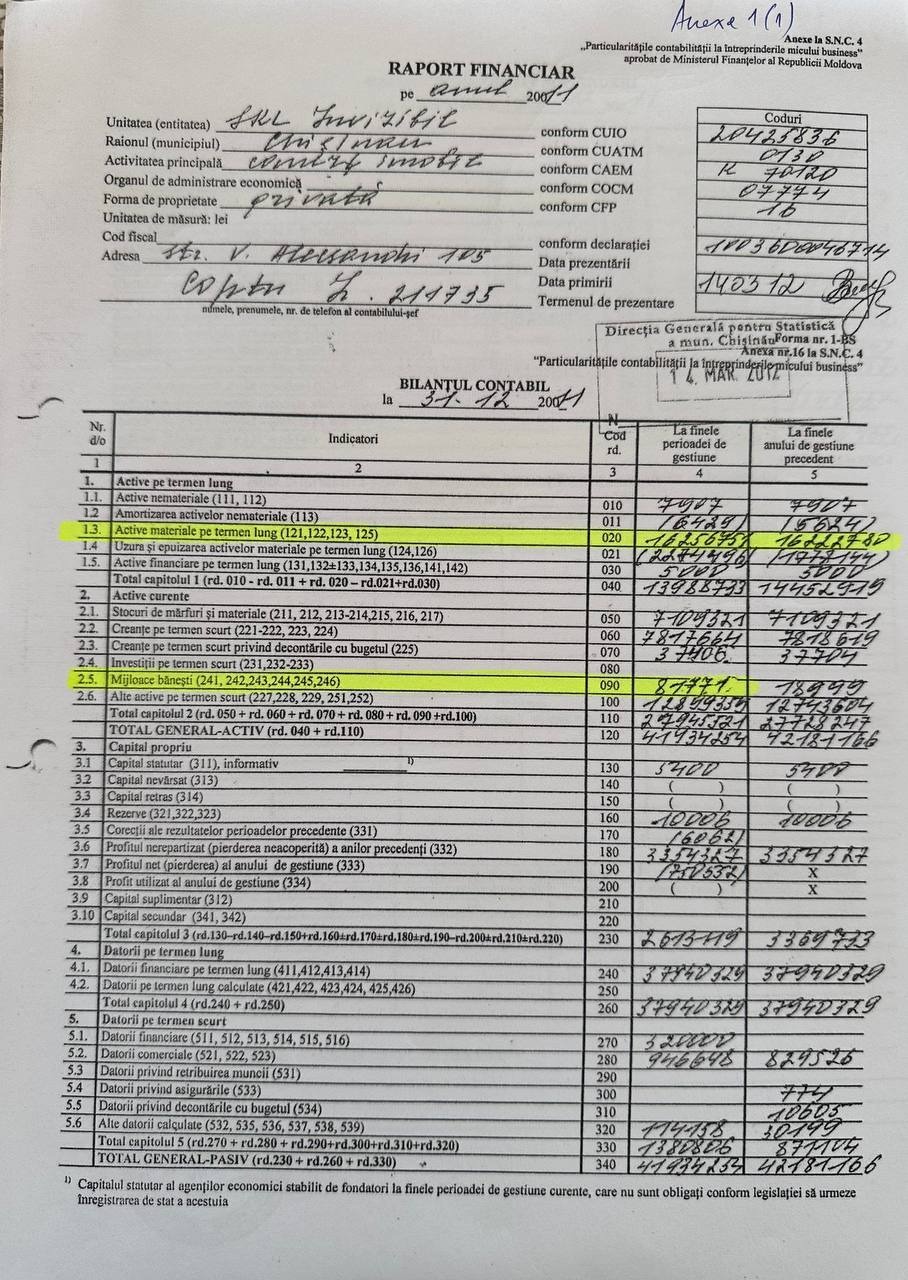 Anexe 1 (1)
Anexe la S.N.C. 4
„Particularitățile contabilității la întreprinderile micului business”
aprobat de Ministerul Finanțelor al Republicii Moldova
RAPORT FINANCIAR
pe anul 200 11
Coduri
Unitatea (entitatea) SRL Invizibil conform CUIO 20425836
Raionul (municipiul) Chișinău conform CUATM 0130
Activitatea principală conform CAEM K 70120
Organul de administrare economică conform COCM 07774
Forma de proprietate privată conform CFP 16
Unitatea de măsură: lei
Cod fiscal conform declarației 1003600046714
Adresa str. V. Alecsandri 105 Data prezentării
Data primirii 140312
L. 211735 Termenul de prezentare
numele, prenumele, nr. de telefon al contabilului-șef
Direcția Generală pentru Statistică
a mun. Chișinău Forma nr. 1-BS
Anexa nr.16 la S.N.C. 4
“Particularitățile contabilității la întreprinderile micului business”
14. MAR. 2012
BILANȚUL CONTABIL
la 31. 12 200 11
Nr. d/o Indicatori Cod rd. La finele perioadei de gestiune La finele anului de gestiune precedent
1 2 3 4 5
1. Active pe termen lung
1.1. Active nemateriale (111, 112) 010 7907 7907
1.2 Amortizarea activelor nemateriale (113) 011 (6429) (5624)
1.3. Active materiale pe termen lung (121,122,123, 125) 020 16256751 16222780
1.4 Uzura și epuizarea activelor materiale pe termen lung (124,126) 021 (2274496) (1777144)
1.5. Active financiare pe termen lung (131,132±133,134,135,136,141,142) 030 5000 5000
Total capitolul 1 (rd. 010 - rd. 011 + rd. 020 – rd.021+rd.030) 040 13988733 14452919
2. Active curente
2.1. Stocuri de mărfuri și materiale (211, 212, 213-214,215, 216, 217) 050 7109321 7109321
2.2. Creanțe pe termen scurt (221-222, 223, 224) 060 7817664 7818619
2.3. Creanțe pe termen scurt privind decontările cu bugetul (225) 070 37406 37704
2.4. Investiții pe termen scurt (231,232-233) 080
2.5. Mijloace bănești (241, 242,243,244,245,246) 090 81771 18999
2.6. Alte active pe termen scurt (227,228, 229, 251,252) 100 12899359 12743604
Total capitolul 2 (rd. 050 + rd. 060 + rd. 070 + rd. 080 + rd. 090 +rd.100) 110 27945521 27728247
TOTAL GENERAL-ACTIV (rd. 040 + rd.110) 120 41934254 42181166
3. Capital propriu
3.1 Capital statutar (311), informativ ¹⁾ 130 5400 5400
3.2 Capital nevărsat (313) 140 ( ) ( )
3.3 Capital retras (314) 150 ( ) ( )
3.4 Rezerve (321,322,323) 160 10006 10006
3.5 Corecții ale rezultatelor perioadelor precedente (331) 170 (6062)
3.6 Profitul nerepartizat (pierderea neacoperită) a anilor precedenți (332) 180 3354327 3354327
3.7 Profitul net (pierderea) al anului de gestiune (333) 190 (750552) X
3.8 Profit utilizat al anului de gestiune (334) 200 ( ) X
3.9 Capital suplimentar (312) 210
3.10 Capital secundar (341, 342) 220
Total capitolul 3 (rd.130–rd.140–rd.150+rd.160±rd.170±rd.180±rd.190–rd.200±rd.210±rd.220) 230 2613119 3369733
4. Datorii pe termen lung
4.1. Datorii financiare pe termen lung (411,412,413,414) 240 37940329 37940329
4.2. Datorii pe termen lung calculate (421,422, 423,424, 425,426) 250
Total capitolul 4 (rd.240 + rd.250) 260 37940329 37940329
5. Datorii pe termen scurt
5.1. Datorii financiare (511, 512, 513, 514, 515, 516) 270 320000
5.2. Datorii comerciale (521, 522, 523) 280 946648 829526
5.3 Datorii privind retribuirea muncii (531) 290
5.4 Datorii privind asigurările (533) 300 774
5.5 Datorii privind decontările cu bugetul (534) 310 10605
5.6 Alte datorii calculate (532, 535, 536, 537, 538, 539) 320 114158 30199
Total capitolul 5 (rd.270 + rd.280 + rd.290+rd.300+rd.310+rd.320) 330 1380806 871104
TOTAL GENERAL-PASIV (rd.230 + rd.260 + rd.330) 340 41934254 42181166
¹⁾ Capitalul statutar al agenților economici stabilit de fondatori la finele perioadei de gestiune curente, care nu sunt obligați conform legislației să urmeze
înregistrarea de stat a acestuia